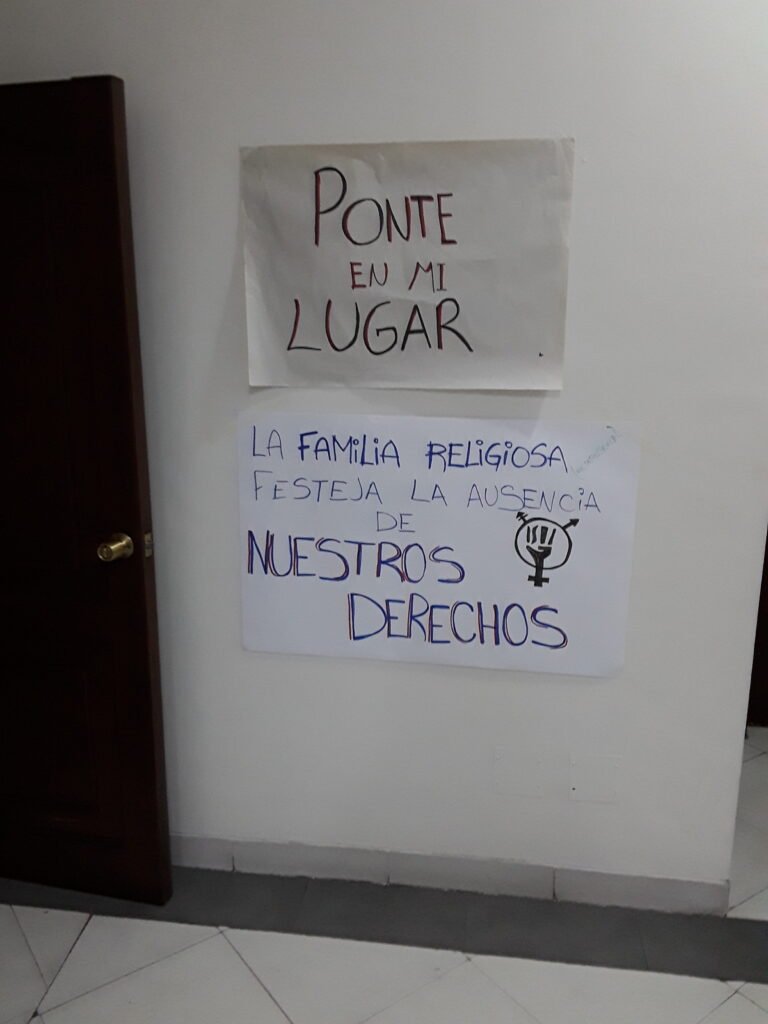 PONTE
EN MI
LUGAR
LA FAMILIA RELIGIOSA
FESTEJA LA AUSENCIA
DE
NUESTROS
DERECHOS